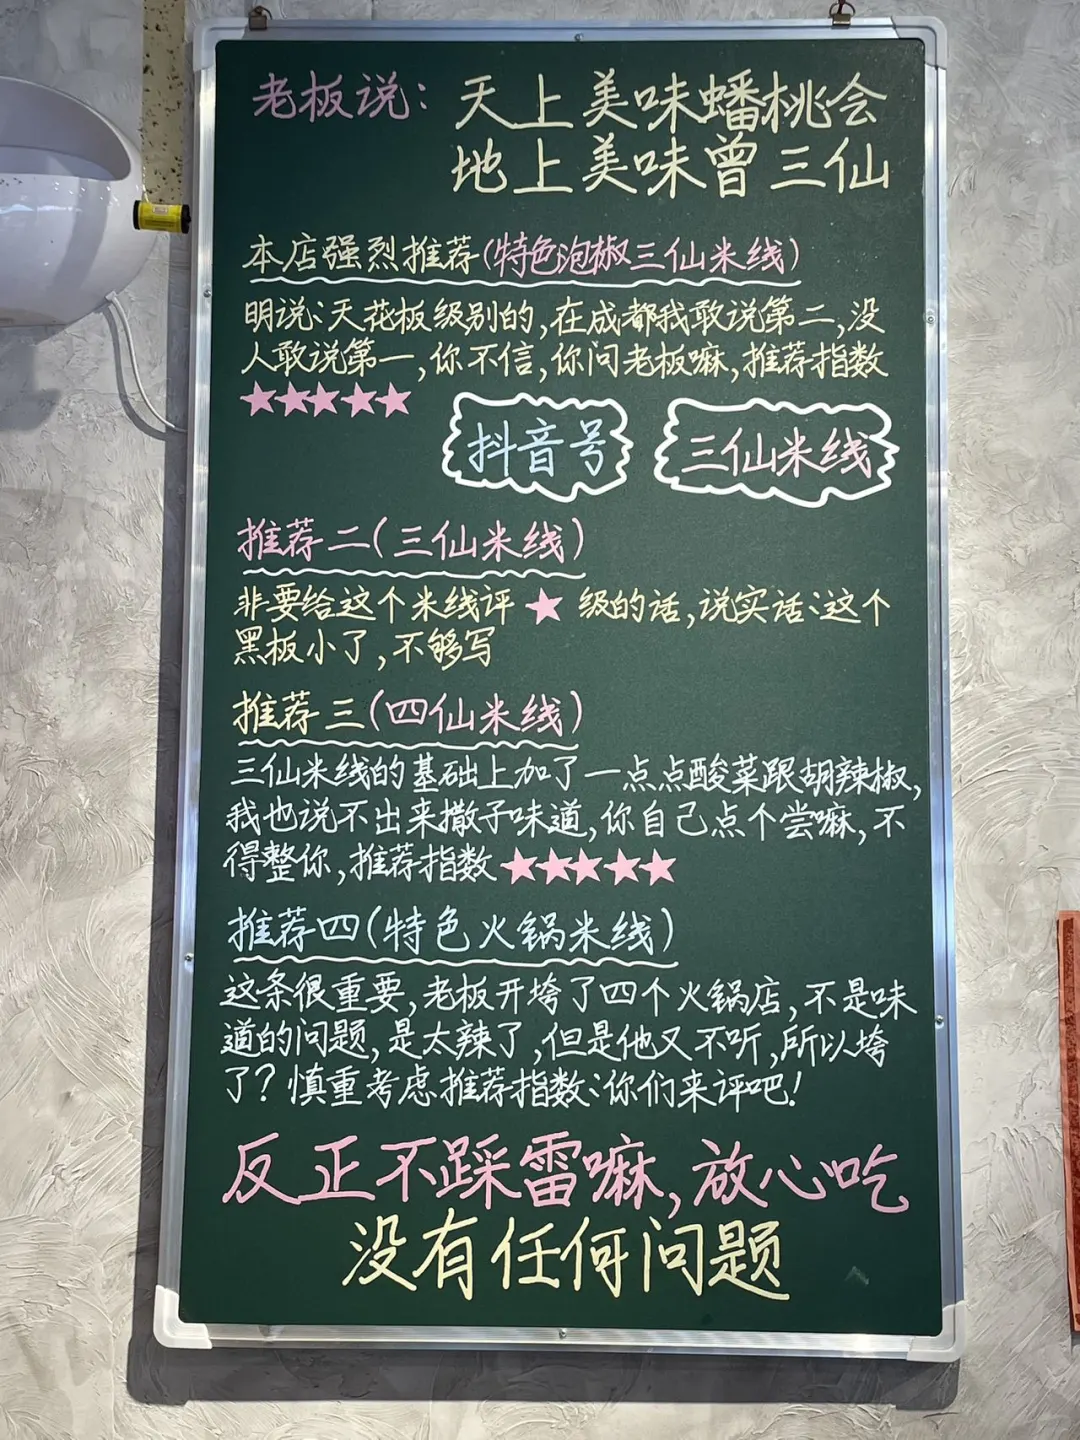 老板说：天上美味蟠桃会
地上美味曾三仙
本店强烈推荐(特色泡椒三仙米线)
明说：天花板级别的，在成都我敢说第二，没
人敢说第一，你不信，你问老板嘛，推荐指数
★★★★★
抖音号 三仙米线
推荐二(三仙米线)
非要给这个米线评★级的话，说实话：这个
黑板小了，不够写
推荐三(四仙米线)
三仙米线的基础上加了一点点酸菜跟胡辣椒，
我也说不出来撒子味道，你自己点个尝嘛，不
得整你，推荐指数★★★★★
推荐四(特色火锅米线)
这条很重要，老板开垮了四个火锅店，不是味
道的问题，是太辣了，但是他又不听，所以垮
了？慎重考虑推荐指数：你们来评吧！
反正不踩雷嘛，放心吃
没有任何问题